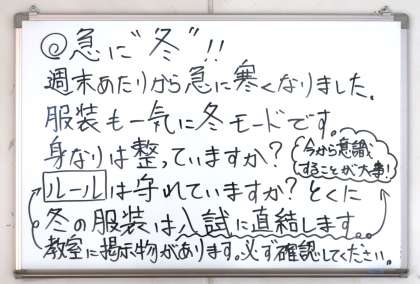 ◎急に"冬"!!
週末あたりから急に寒くなりました。
服装も一気に冬モードです。
身なりは整っていますか?
今から意識
することが大事!
ルールは守れていますか?とくに
冬の服装は入試に直結します。
教室に掲示物があります。必ず確認してください。